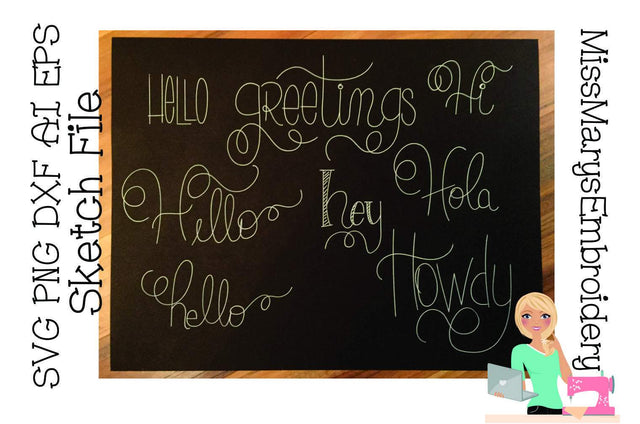 SVG PNG DXF AI EPS
Sketch File
HELLO greetings Hi
Hello hey Hola
hello Howdy
MissMarysEmbroidery